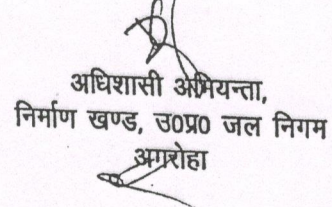 अधिशासी अभियन्ता,
निर्माण खण्ड, उ0प्र0 जल निगम
अगरोहा